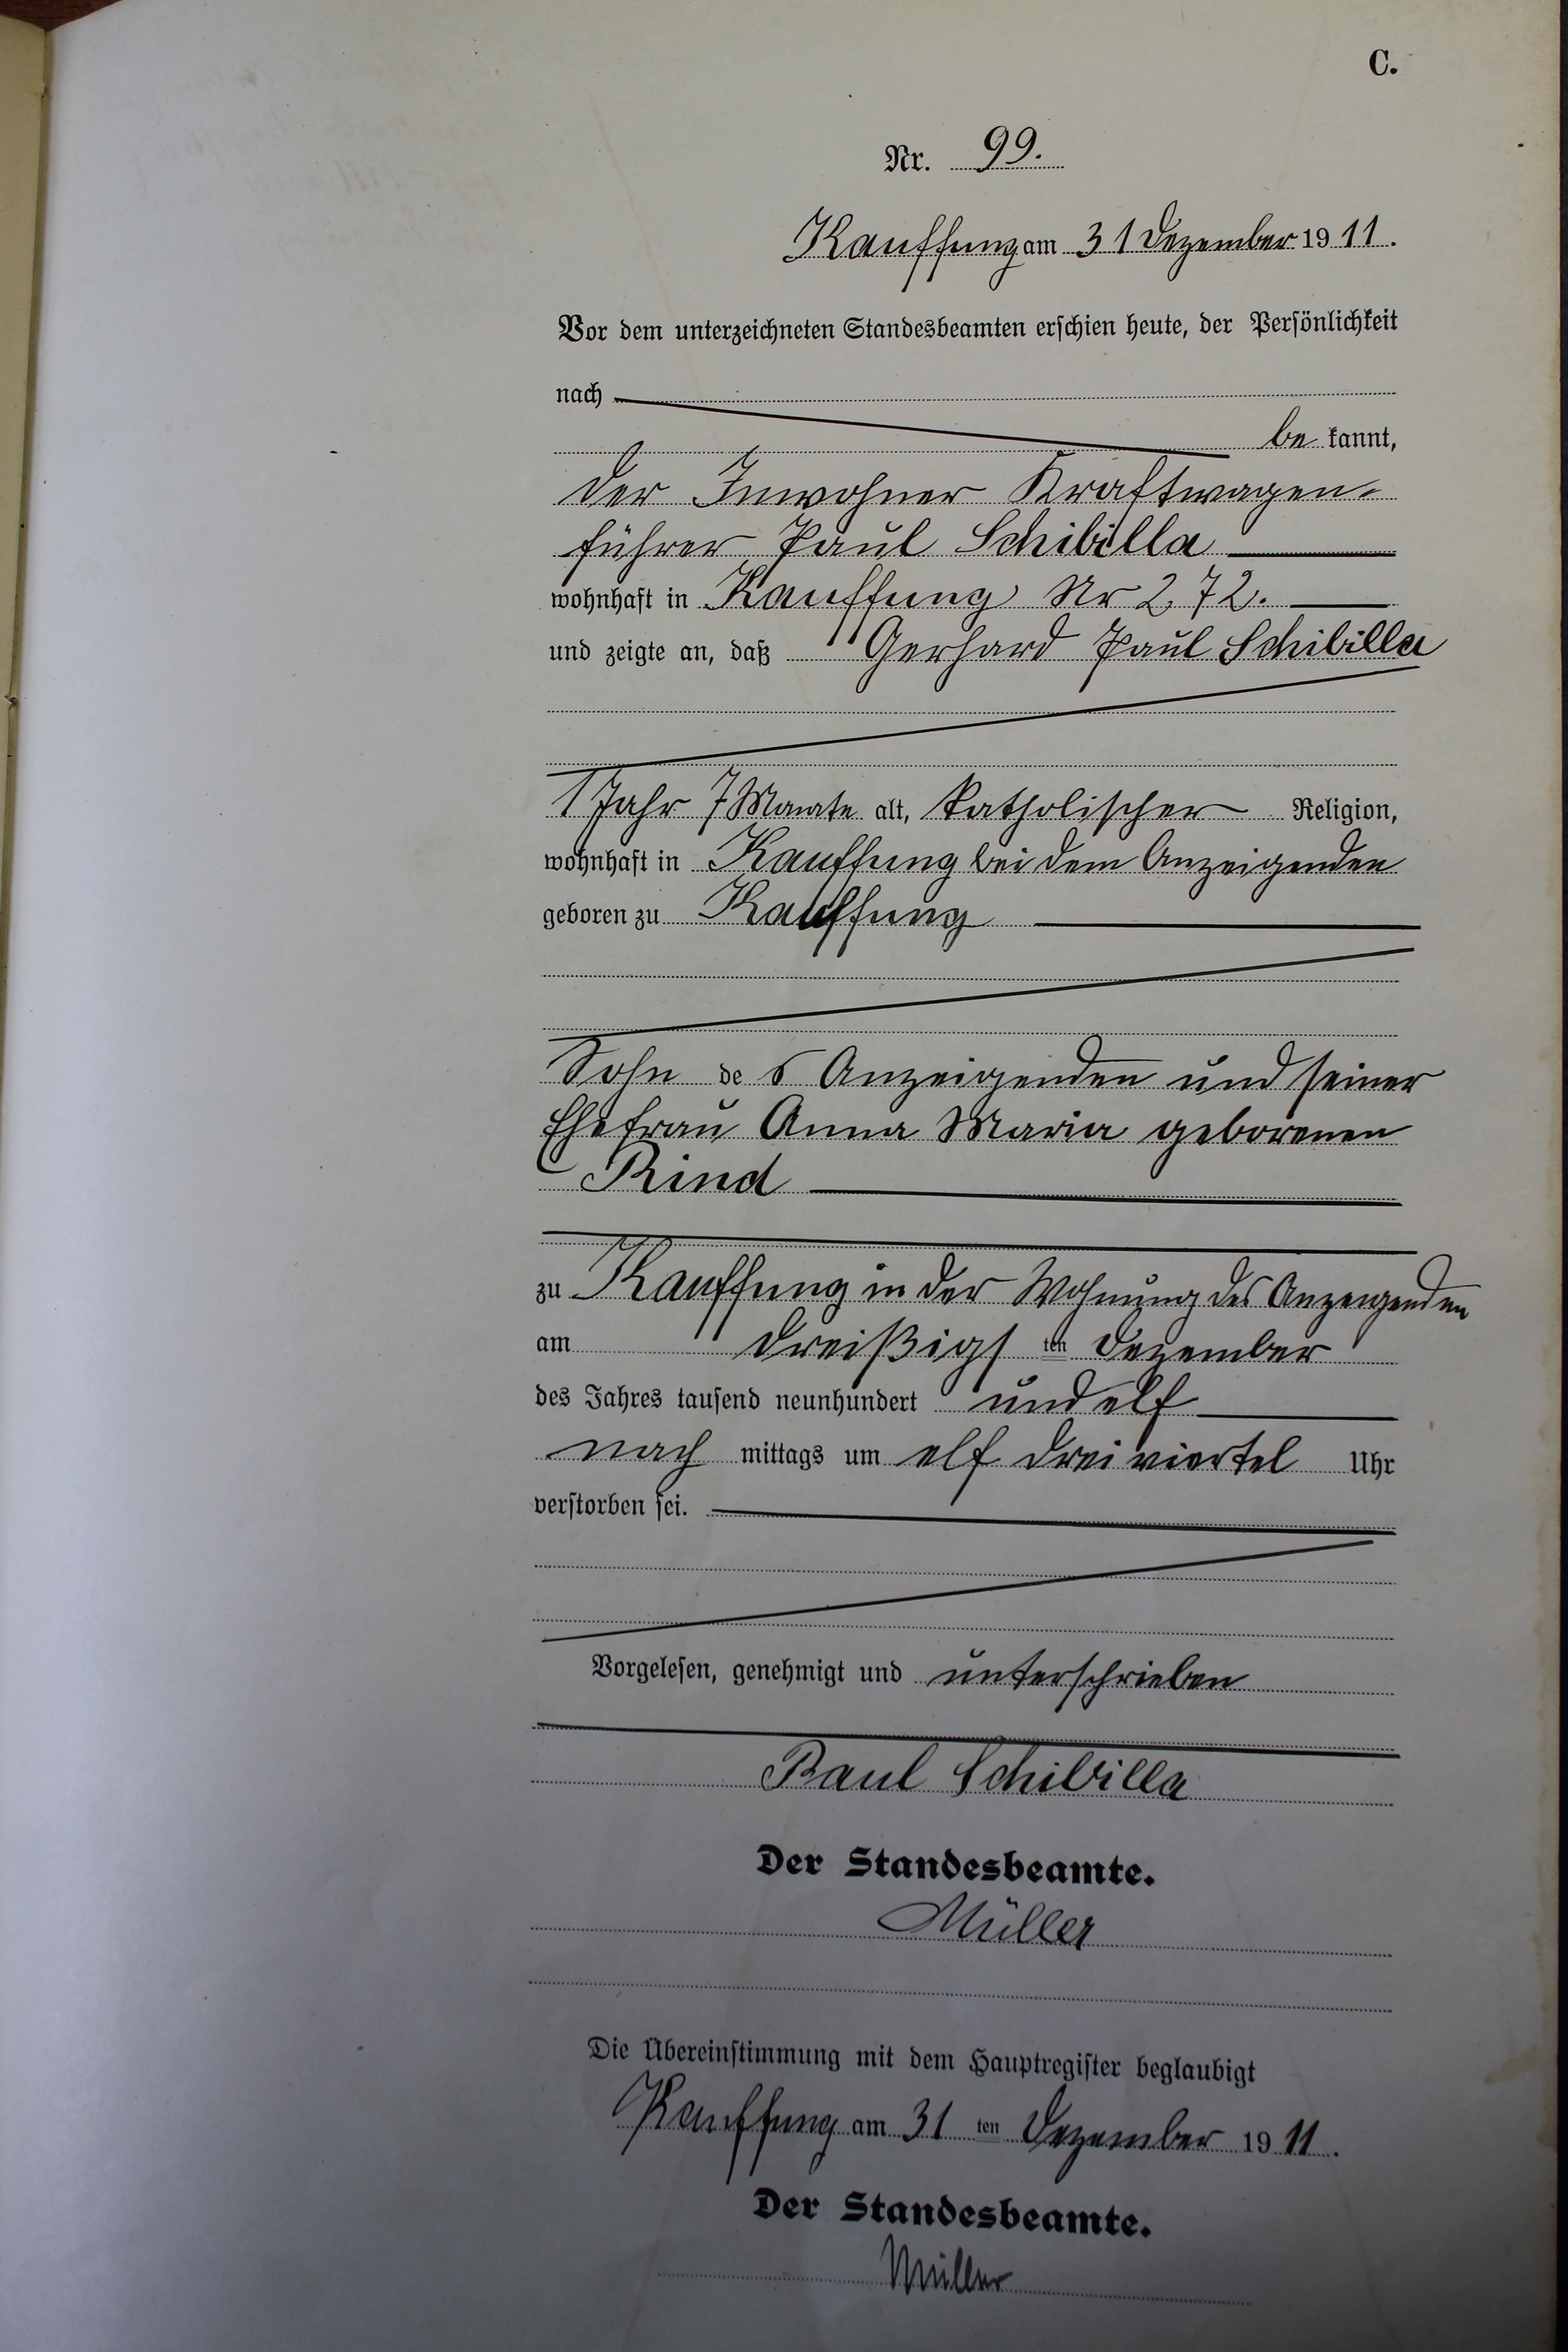 C.
Nr. 99.
Kauffung am 31 Dezember 1911.
Vor dem unterzeichneten Standesbeamten erschien heute, der Persönlichkeit
nach
be kannt,
der Inwohner Kraftwagen-
führer Paul Schibilla
wohnhaft in Kauffung Nr 272.
und zeigte an, daß Gerhard Paul Schibilla
1 Jahr 7 Monate alt, katholischer Religion,
wohnhaft in Kauffung bei dem Anzeigenden
geboren zu Kauffung
Sohn des Anzeigenden und seiner
Ehefrau Anna Maria geborenen
Rind
zu Kauffung in der Wohnung des Anzeigenden
am dreißigsten Dezember
des Jahres tausend neunhundert und elf
nach mittags um elf dreiviertel Uhr
verstorben sei.
Vorgelesen, genehmigt und unterschrieben
Paul Schibilla
Der Standesbeamte.
Müller
Die Übereinstimmung mit dem Hauptregister beglaubigt
Kauffung am 31 ten Dezember 1911.
Der Standesbeamte.
Müller